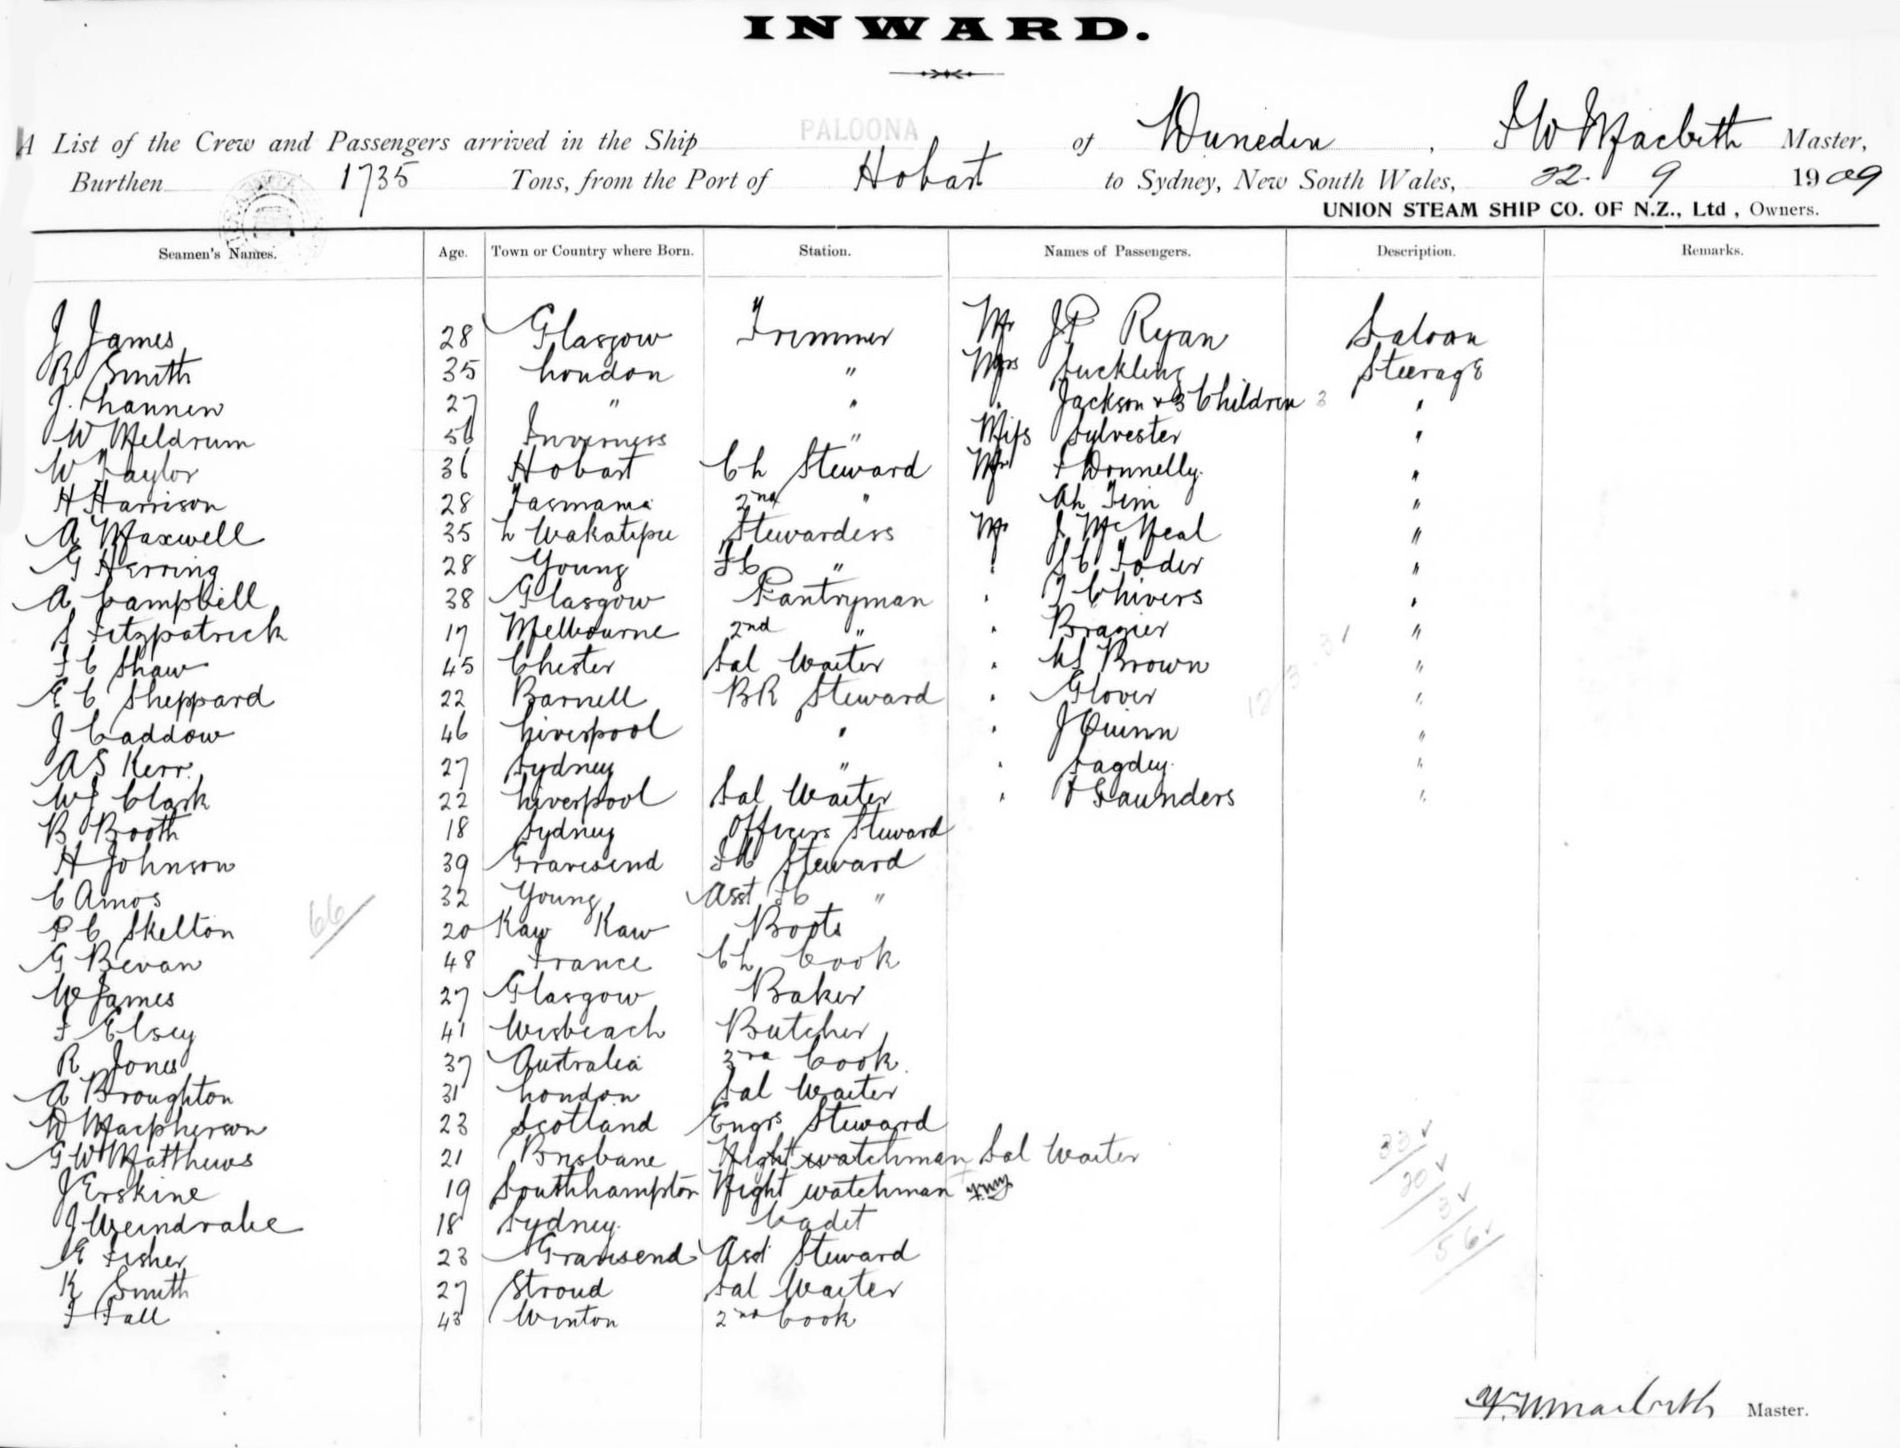 INWARD.
A List of the Crew and Passengers arrived in the Ship PALOONA of Dunedin, F W Macbeth Master,
Burthen 1735 Tons, from the Port of Hobart to Sydney, New South Wales, 22. 9 1909
UNION STEAM SHIP CO. OF N.Z., Ltd , Owners.
Seamen's Names. Age. Town or Country where Born. Station. Names of Passengers. Description. Remarks.
J James 28 Glasgow Trimmer Mr J P Ryan Saloon
R Smith 35 London " Mrs Suckling Steerage
J. Channen 27 " " " Jackson & 3 Children 3 "
W Meldrum 56 Inverness " Miss Sylvester "
W Taylor 36 Hobart Ch Steward Mr F Donnelly "
H Harrison 28 Tasmania 2nd " Ah Tim "
A Maxwell 35 L Wakatipu Stewardess Mr J McNeal "
G Herring 28 Young FC " " "
A Campbell 38 Glasgow Pantryman " T Chivers "
S Fitzpatrick 17 Melbourne 2nd " " Brazier "
F C Shaw 45 Chester Sal Waiter " Brown "
E C Sheppard 22 Barnell BR Steward " Glover "
J Caddow 46 Liverpool " " J Quinn "
A S Kerr 27 Sydney " " Sagdey "
W J Clark 22 Liverpool Sal Waiter " F Saunders "
B Booth 18 Sydney Officers Steward
H Johnson 39 Gravesend FC Steward
C Amos 32 Young Asst FC "
P C Skelton 20 Kaw Kaw Boots
G Bevan 48 France Ch Cook
W James 27 Glasgow Baker
F Elsey 41 Wisbeach Butcher
R Jones 37 Australia 3rd Cook
A Broughton 31 London Sal Waiter
D Macpherson 23 Scotland Engrs Steward
G W Matthews 21 Brisbane Night watchman Sal Waiter
J Erskine 19 Southhampton Night watchman
J Weindrabe 18 Sydney Cadet
E Fisher 23 Gravesend Asst Steward
K Smith 27 Stroud Sal Waiter
F Fall 43 Winton 2nd Cook
66
33
20
3
56
F. W. Macbeth Master.